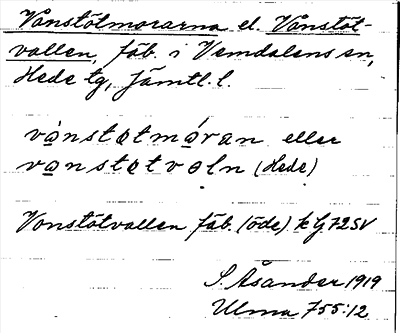 Vanstötmorarna el. Vånstöt-
vallen, fäb. i Vemdalens sn,
Hede tg, Jämtl. l.
vànstøtmóran eller
vanstøtvøln (Hede)
Vonstötvallen fäb. (öde) k G 72 SV
S. Åsander 1919
Ulma 755:12